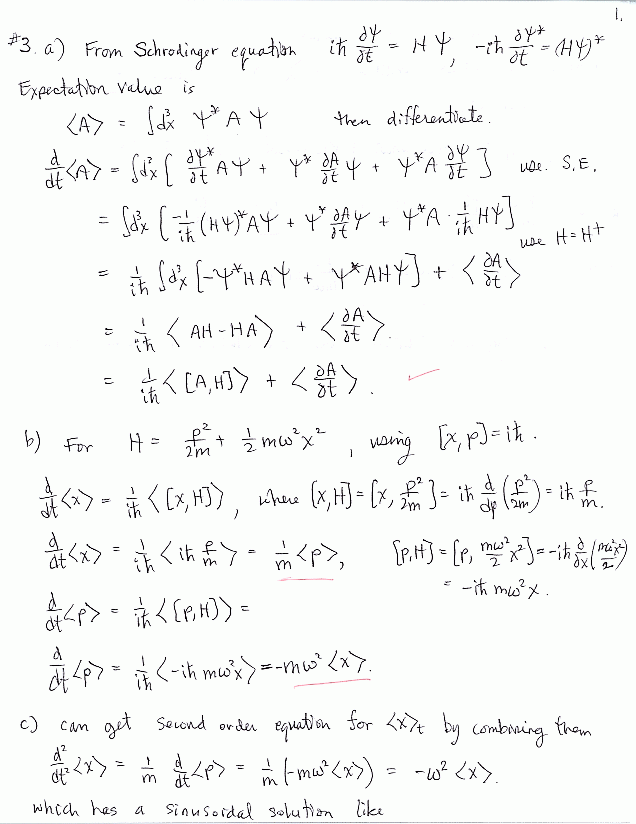 1.
#3. a) From Schrodinger equation iħ ∂Ψ/∂t = HΨ, -iħ ∂Ψ*/∂t = (HΨ)*
Expectation value is
<A> = ∫d³x Ψ* A Ψ then differentiate.
d/dt <A> = ∫d³x [ ∂Ψ*/∂t AΨ + Ψ* ∂A/∂t Ψ + Ψ*A ∂Ψ/∂t ] use S.E.
= ∫d³x [ -1/iħ (HΨ)*AΨ + Ψ* ∂A/∂t Ψ + Ψ*A · 1/iħ HΨ ]
use H = H†
= 1/iħ ∫d³x [-Ψ*HAΨ + Ψ*AHΨ] + <∂A/∂t>
= 1/iħ <AH-HA> + <∂A/∂t>.
= 1/iħ <[A,H]> + <∂A/∂t>.
b) For H = p²/2m + 1/2 mω²x², using [x,p] = iħ.
d/dt <x> = 1/iħ <[x,H]>, where [x,H] = [x, p²/2m] = iħ d/dp (p²/2m) = iħ p/m.
d/dt <x> = 1/iħ <iħ p/m> = 1/m <p>, [p,H] = [p, mω²/2 x²] = -iħ ∂/∂x (mω²x²/2)
= -iħ mω²x.
d/dt <p> = 1/iħ <[p,H]> =
d/dt <p> = 1/iħ <-iħ mω²x> = -mω² <x>.
c) can get second order equation for <x>t by combining them
d²/dt² <x> = 1/m d/dt <p> = 1/m (-mω² <x>) = -ω² <x>.
which has a sinusoidal solution like